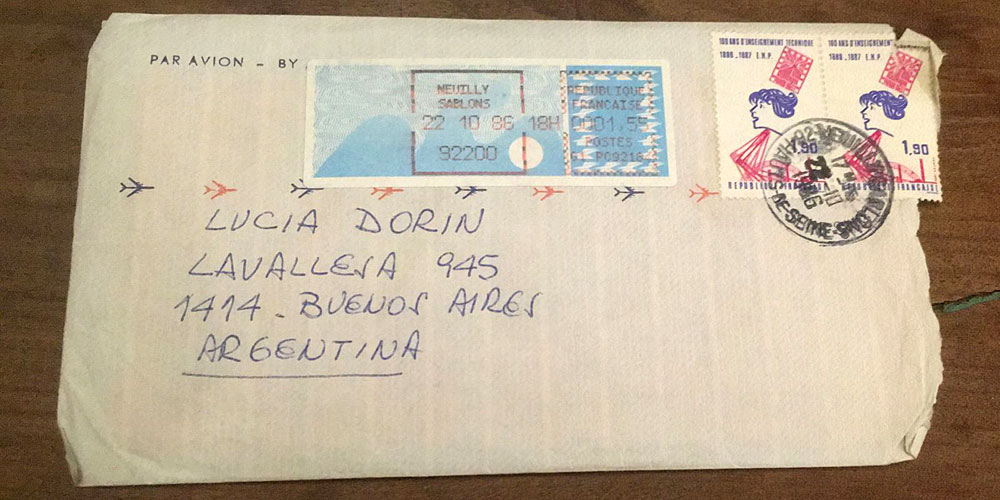 PAR AVION - BY
NEUILLY
SABLONS
22 10 86 18H
92200
REPUBLIQUE
FRANCAISE
0001,55
POSTES
100 ANS D'ENSEIGNEMENT TECHNIQUE
1886-1987 E.N.P.
1,90
REPUBLIQUE FRANÇAISE
100 ANS D'ENSEIGNEMENT
1886-1987 E.N.P.
1,90
FRANÇAISE
LUCIA DORIN
LAVALLEJA 945
1414 - BUENOS AIRES
ARGENTINA